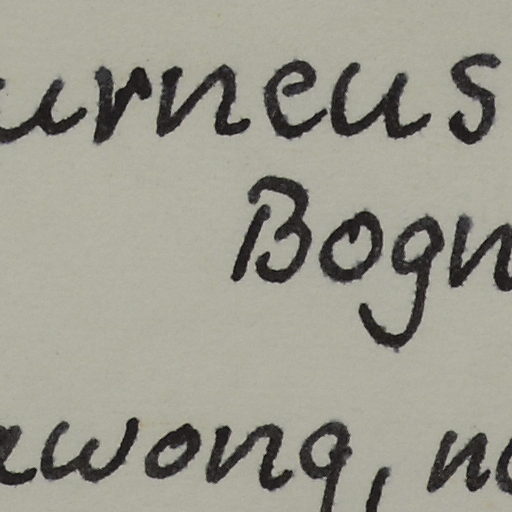 urneus
Bogn
awong, no